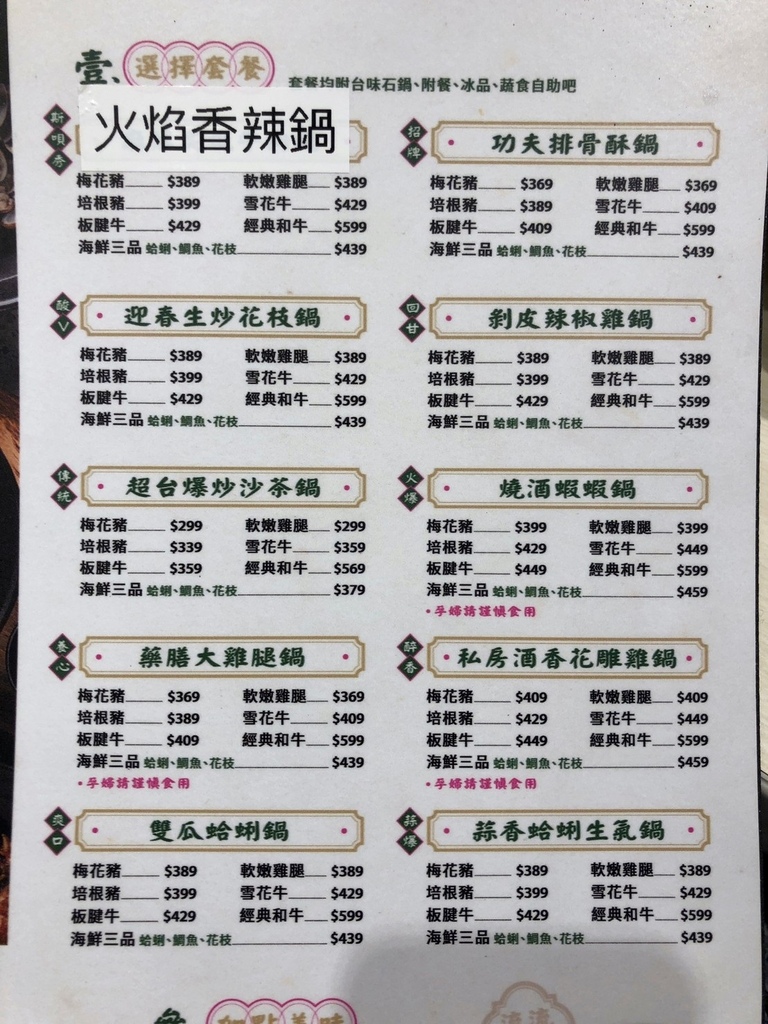 壹、選擇套餐 套餐均附台味石鍋、附餐、冰品、蔬食自助吧
斯唄秀 火焰香辣鍋
梅花豬 $389 軟嫩雞腿 $389
培根豬 $399 雪花牛 $429
板腱牛 $429 經典和牛 $599
海鮮三品 蛤蜊、鯛魚、花枝 $439
招牌 功夫排骨酥鍋
梅花豬 $369 軟嫩雞腿 $369
培根豬 $389 雪花牛 $409
板腱牛 $409 經典和牛 $599
海鮮三品 蛤蜊、鯛魚、花枝 $439
酸V 迎春生炒花枝鍋
梅花豬 $389 軟嫩雞腿 $389
培根豬 $399 雪花牛 $429
板腱牛 $429 經典和牛 $599
海鮮三品 蛤蜊、鯛魚、花枝 $439
回甘 剝皮辣椒雞鍋
梅花豬 $389 軟嫩雞腿 $389
培根豬 $399 雪花牛 $429
板腱牛 $429 經典和牛 $599
海鮮三品 蛤蜊、鯛魚、花枝 $439
傳統 超台爆炒沙茶鍋
梅花豬 $299 軟嫩雞腿 $299
培根豬 $339 雪花牛 $359
板腱牛 $359 經典和牛 $569
海鮮三品 蛤蜊、鯛魚、花枝 $379
火爆 燒酒蝦蝦鍋
梅花豬 $399 軟嫩雞腿 $399
培根豬 $429 雪花牛 $449
板腱牛 $449 經典和牛 $599
海鮮三品 蛤蜊、鯛魚、花枝 $459
•孕婦請謹慎食用
養心 藥膳大雞腿鍋
梅花豬 $369 軟嫩雞腿 $369
培根豬 $389 雪花牛 $409
板腱牛 $409 經典和牛 $599
海鮮三品 蛤蜊、鯛魚、花枝 $439
•孕婦請謹慎食用
醉香 私房酒香花雕雞鍋
梅花豬 $409 軟嫩雞腿 $409
培根豬 $429 雪花牛 $449
板腱牛 $449 經典和牛 $599
海鮮三品 蛤蜊、鯛魚、花枝 $459
•孕婦請謹慎食用
爽口 雙瓜蛤蜊鍋
梅花豬 $389 軟嫩雞腿 $389
培根豬 $399 雪花牛 $429
板腱牛 $429 經典和牛 $599
海鮮三品 蛤蜊、鯛魚、花枝 $439
蒜爆 蒜香蛤蜊生氣鍋
梅花豬 $389 軟嫩雞腿 $389
培根豬 $399 雪花牛 $429
板腱牛 $429 經典和牛 $599
海鮮三品 蛤蜊、鯛魚、花枝 $439
加點美味